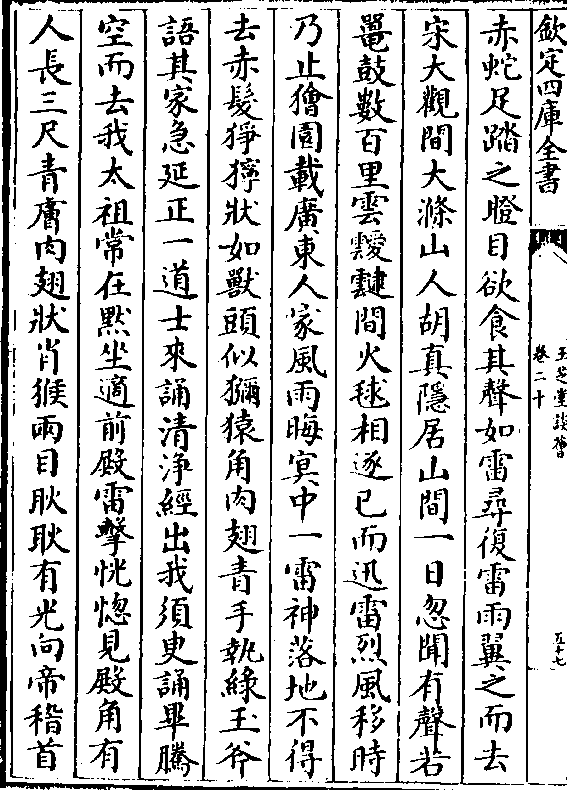 欽定四庫全書
玉芝堂談薈
卷二十
五十七
赤蛇足踏之瞪目欲食其聲如雷尋復雷雨翼之而去
宋大觀間大滌山人胡真隱居山間一日忽聞有聲若
鼉鼓數百里雲靉靆間火毬相逐已而迅雷烈風移時
乃止獪園載廣東人家風雨晦冥中一雷神落地不得
去赤髮猙獰狀如獸頭似獼猿角肉翅青手執綠玉斧
語其家急延正一道士來誦清淨經出我須臾誦畢騰
空而去我太祖常在默坐適前殿雷擊恍惚見殿角有
人長三尺青膚肉翅狀肖猴兩目耿耿有光向帝稽首